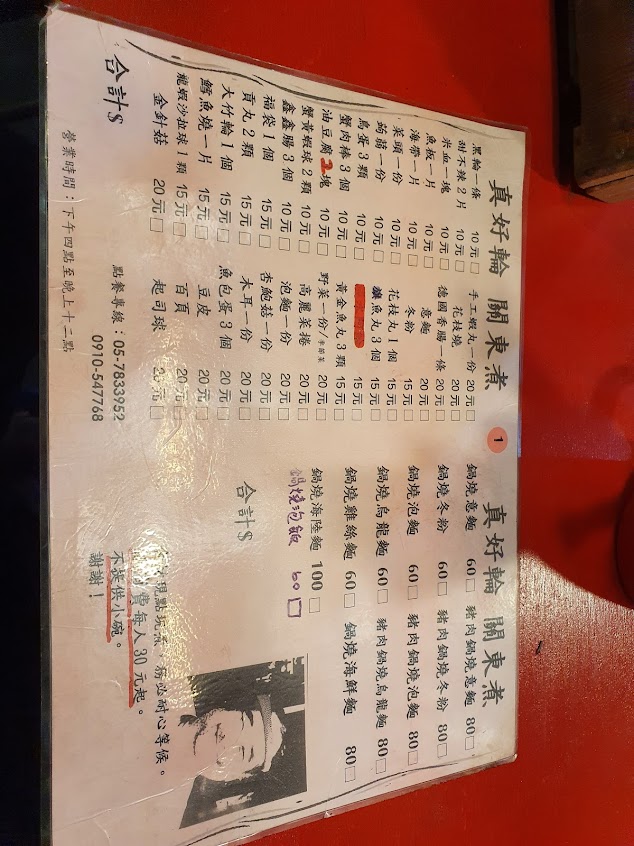 真好輪 關東煮
黑輪一條 10元□
甜不辣2片 10元□
米血一塊 10元□
魚板一片 10元□
海帶一片 10元□
菜頭一份 10元□
蒟蒻一份 10元□
鳥蛋3顆 10元□
蟹肉棒3個 10元□
油豆腐2塊 10元□
蟹黃蝦球2顆 10元□
鑫鑫腸3個 10元□
福袋1個 15元□
貢丸2顆 15元□
大竹輪1個 15元□
鱈魚燒一片 15元□
龍蝦沙拉球1顆 15元□
金針菇 20元□
手工蝦丸一份 20元□
花枝燒 20元□
德國香腸一條 20元□
意麵 20元□
冬粉 15元□
花枝丸1個 15元□
魚丸3個 15元□
15元□
黃金魚丸3顆 15元□
野菜一份/季節菜 20元□
高麗菜捲 20元□
泡麵一份 20元□
杏鮑菇一份 20元□
木耳一份 20元□
魚包蛋3個 20元□
豆皮 20元□
百頁 20元□
起司球 20元□
合計$
點餐專線：05-7833952
0910-547768
營業時間：下午四點至晚上十二點
1
真好輪 關東煮
鍋燒意麵 60□
鍋燒冬粉 60□
鍋燒泡麵 60□
鍋燒烏龍麵 60□
鍋燒雞絲麵 60□
鍋燒海陸麵 100□
鍋燒泡飯 60□
豬肉鍋燒意麵 80□
豬肉鍋燒冬粉 80□
豬肉鍋燒泡麵 80□
豬肉鍋燒烏龍麵 80□
鍋燒海鮮麵 80□
合計$
現點現煮，務必耐心等候。
費每人30元起。
不提供小碗。
謝謝！